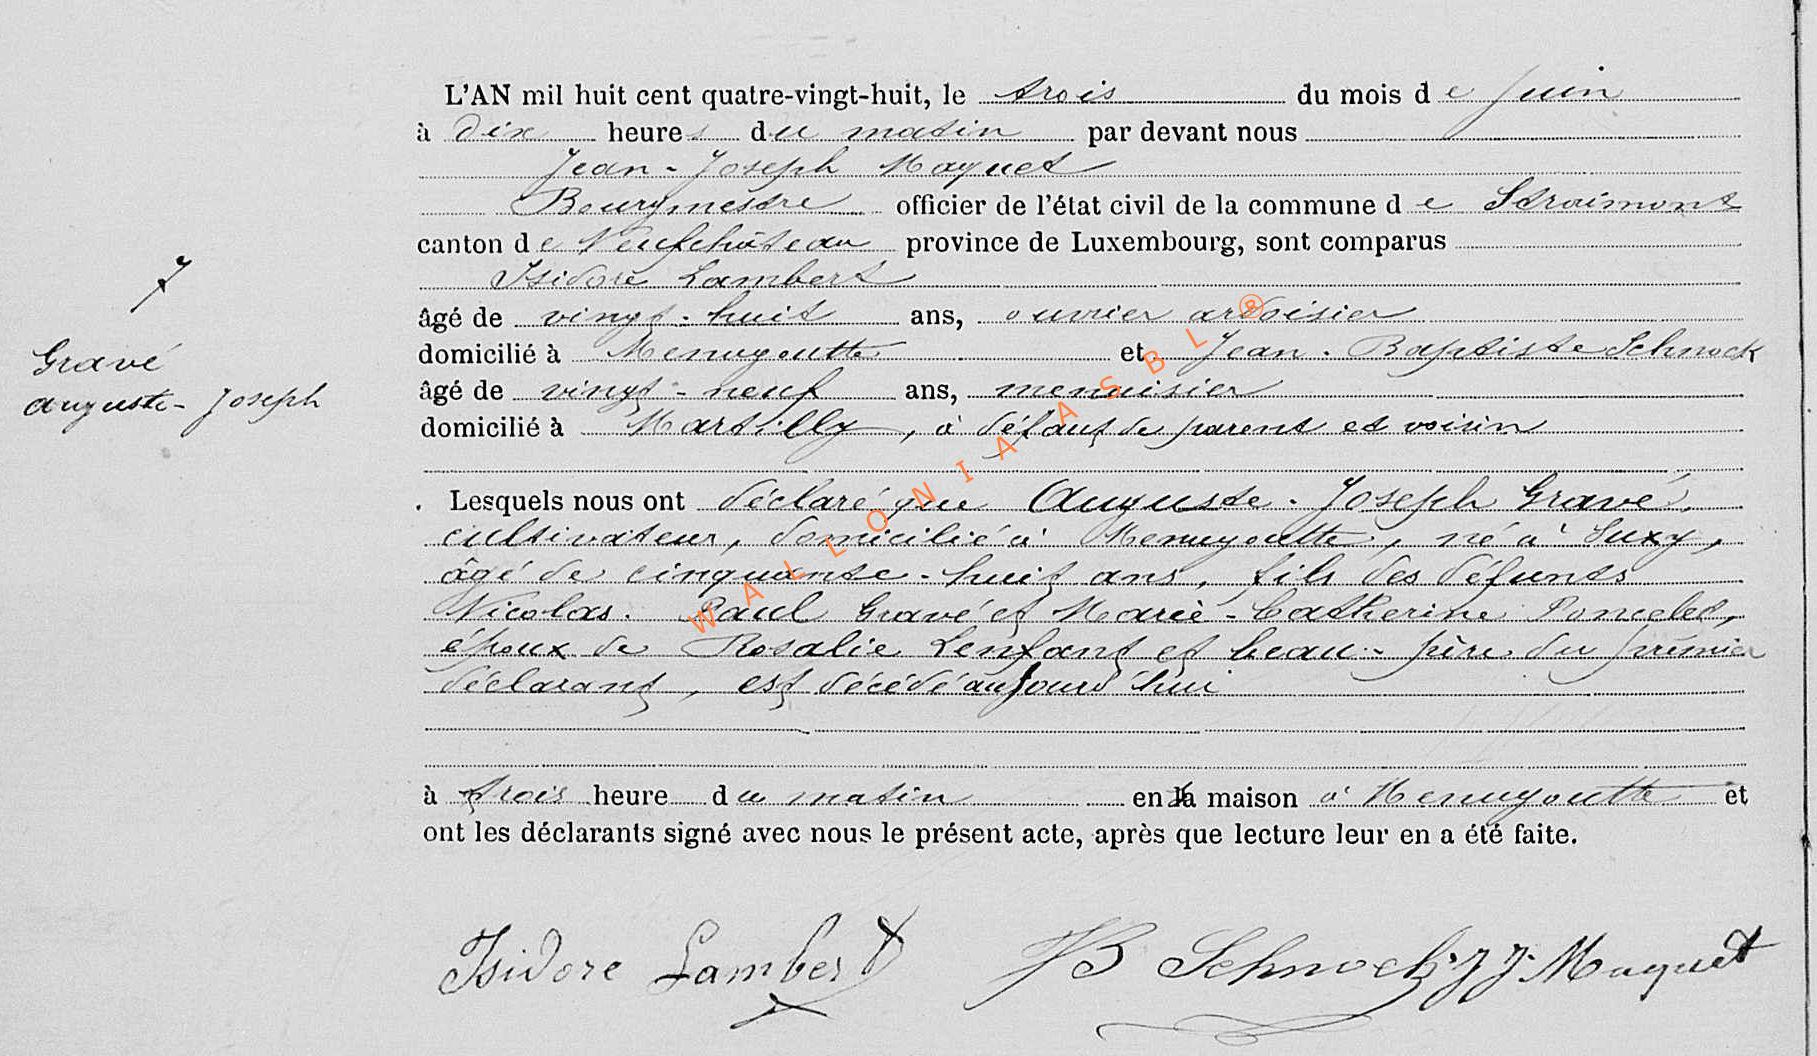 L'AN mil huit cent quatre-vingt-huit, le trois du mois de juin
à dix heures du matin par devant nous
Jean-Joseph Maquet
Bourgmestre officier de l'état civil de la commune de Straimont
canton de Neufchâteau province de Luxembourg, sont comparus
Isidore Lambert
7
âgé de vingt-huit ans, ouvrier ardoisier
Gravé
domicilié à Menugoutte et Jean-Baptiste Schnock
Auguste-Joseph
âgé de vingt-neuf ans, menuisier
domicilié à Martilly, à défaut de parent et voisin
Lesquels nous ont déclaré que Auguste-Joseph Gravé,
cultivateur, domicilié à Menugoutte, né à Suxy,
âgé de cinquante-huit ans, fils des défunts
Nicolas-Paul Gravé et Marie-Catherine Poncelet,
époux de Rosalie Lenfant et beau-père du premier
déclarant, est décédé aujourd'hui
à trois heure du matin en la maison à Menugoutte et
ont les déclarants signé avec nous le présent acte, après que lecture leur en a été faite.
Isidore Lambert JB Schnock J.J. Maquet
WALLONIA ASBL ®